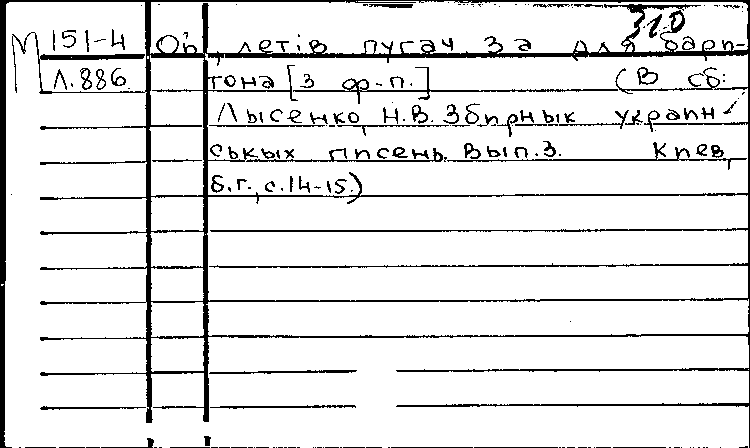 310
М 151-4 Ой, летів пугач. 3а для бари-
Л.886 тона [з ф-п.] (В сб:
Лысенко, Н.В. Збирнык украин-
ськых писень. Вып.3. Киев,
б.г., с.14-15.)